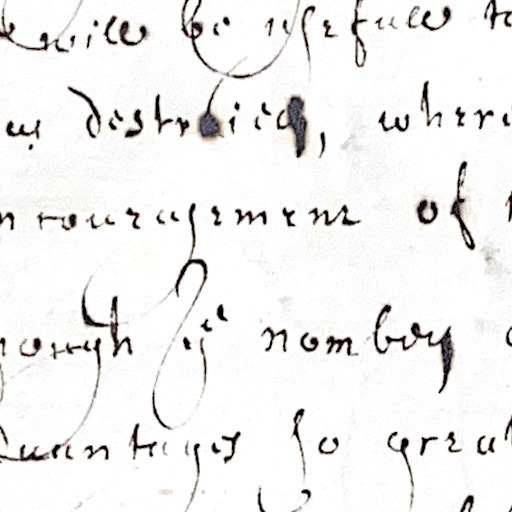 will be usefull to
us destroied, where
incouragement of
though yᵉ nomber
advantages so great